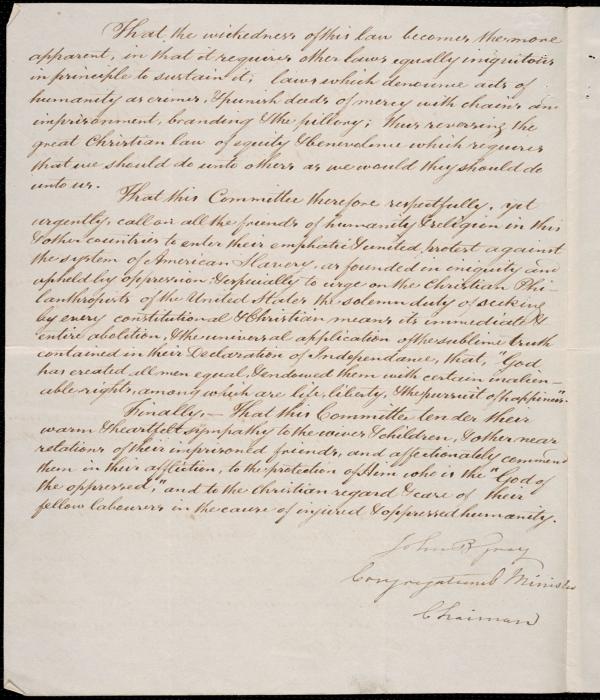 That, the wickedness of this law becomes the more
apparent, in that it requires other laws equally iniquitous
in principle to sustain it; laws which denounce acts of
humanity as crimes, & punish deeds of mercy with chains and
imprisonment, branding & the pillory; thus reversing the
great Christian law of equity & benevolence which requires
that we should do unto others as we would they should do
unto us.
That this Committee therefore respectfully, yet
urgently, call on all the friends of humanity & religion in this
& other countries to enter their emphatic & united protest against
the system of American Slavery, as founded in iniquity and
upheld by oppression, & especially to urge on the Christian Phi-
lanthropists of the United States the solemn duty of seeking
by every constitutional & Christian means its immediate &
entire abolition, & the universal application of the sublime truth
contained in their Declaration of Independance, that, "God
has created all men equal, & endowed them with certain inalien-
able rights, among which are life, liberty, & the pursuit of happiness".
Finally,— That this Committee tender their
warm & heartfelt sympathy to the wives & children, & other near
relations of their imprisoned friends, and affectionately commend
them in their affliction, to the protection of Him who is the "God of
the oppressed," and to the Christian regard & care of their
fellow labourers in the cause of injured & oppressed humanity.
John B Gray
Congregational Minister
Chairman